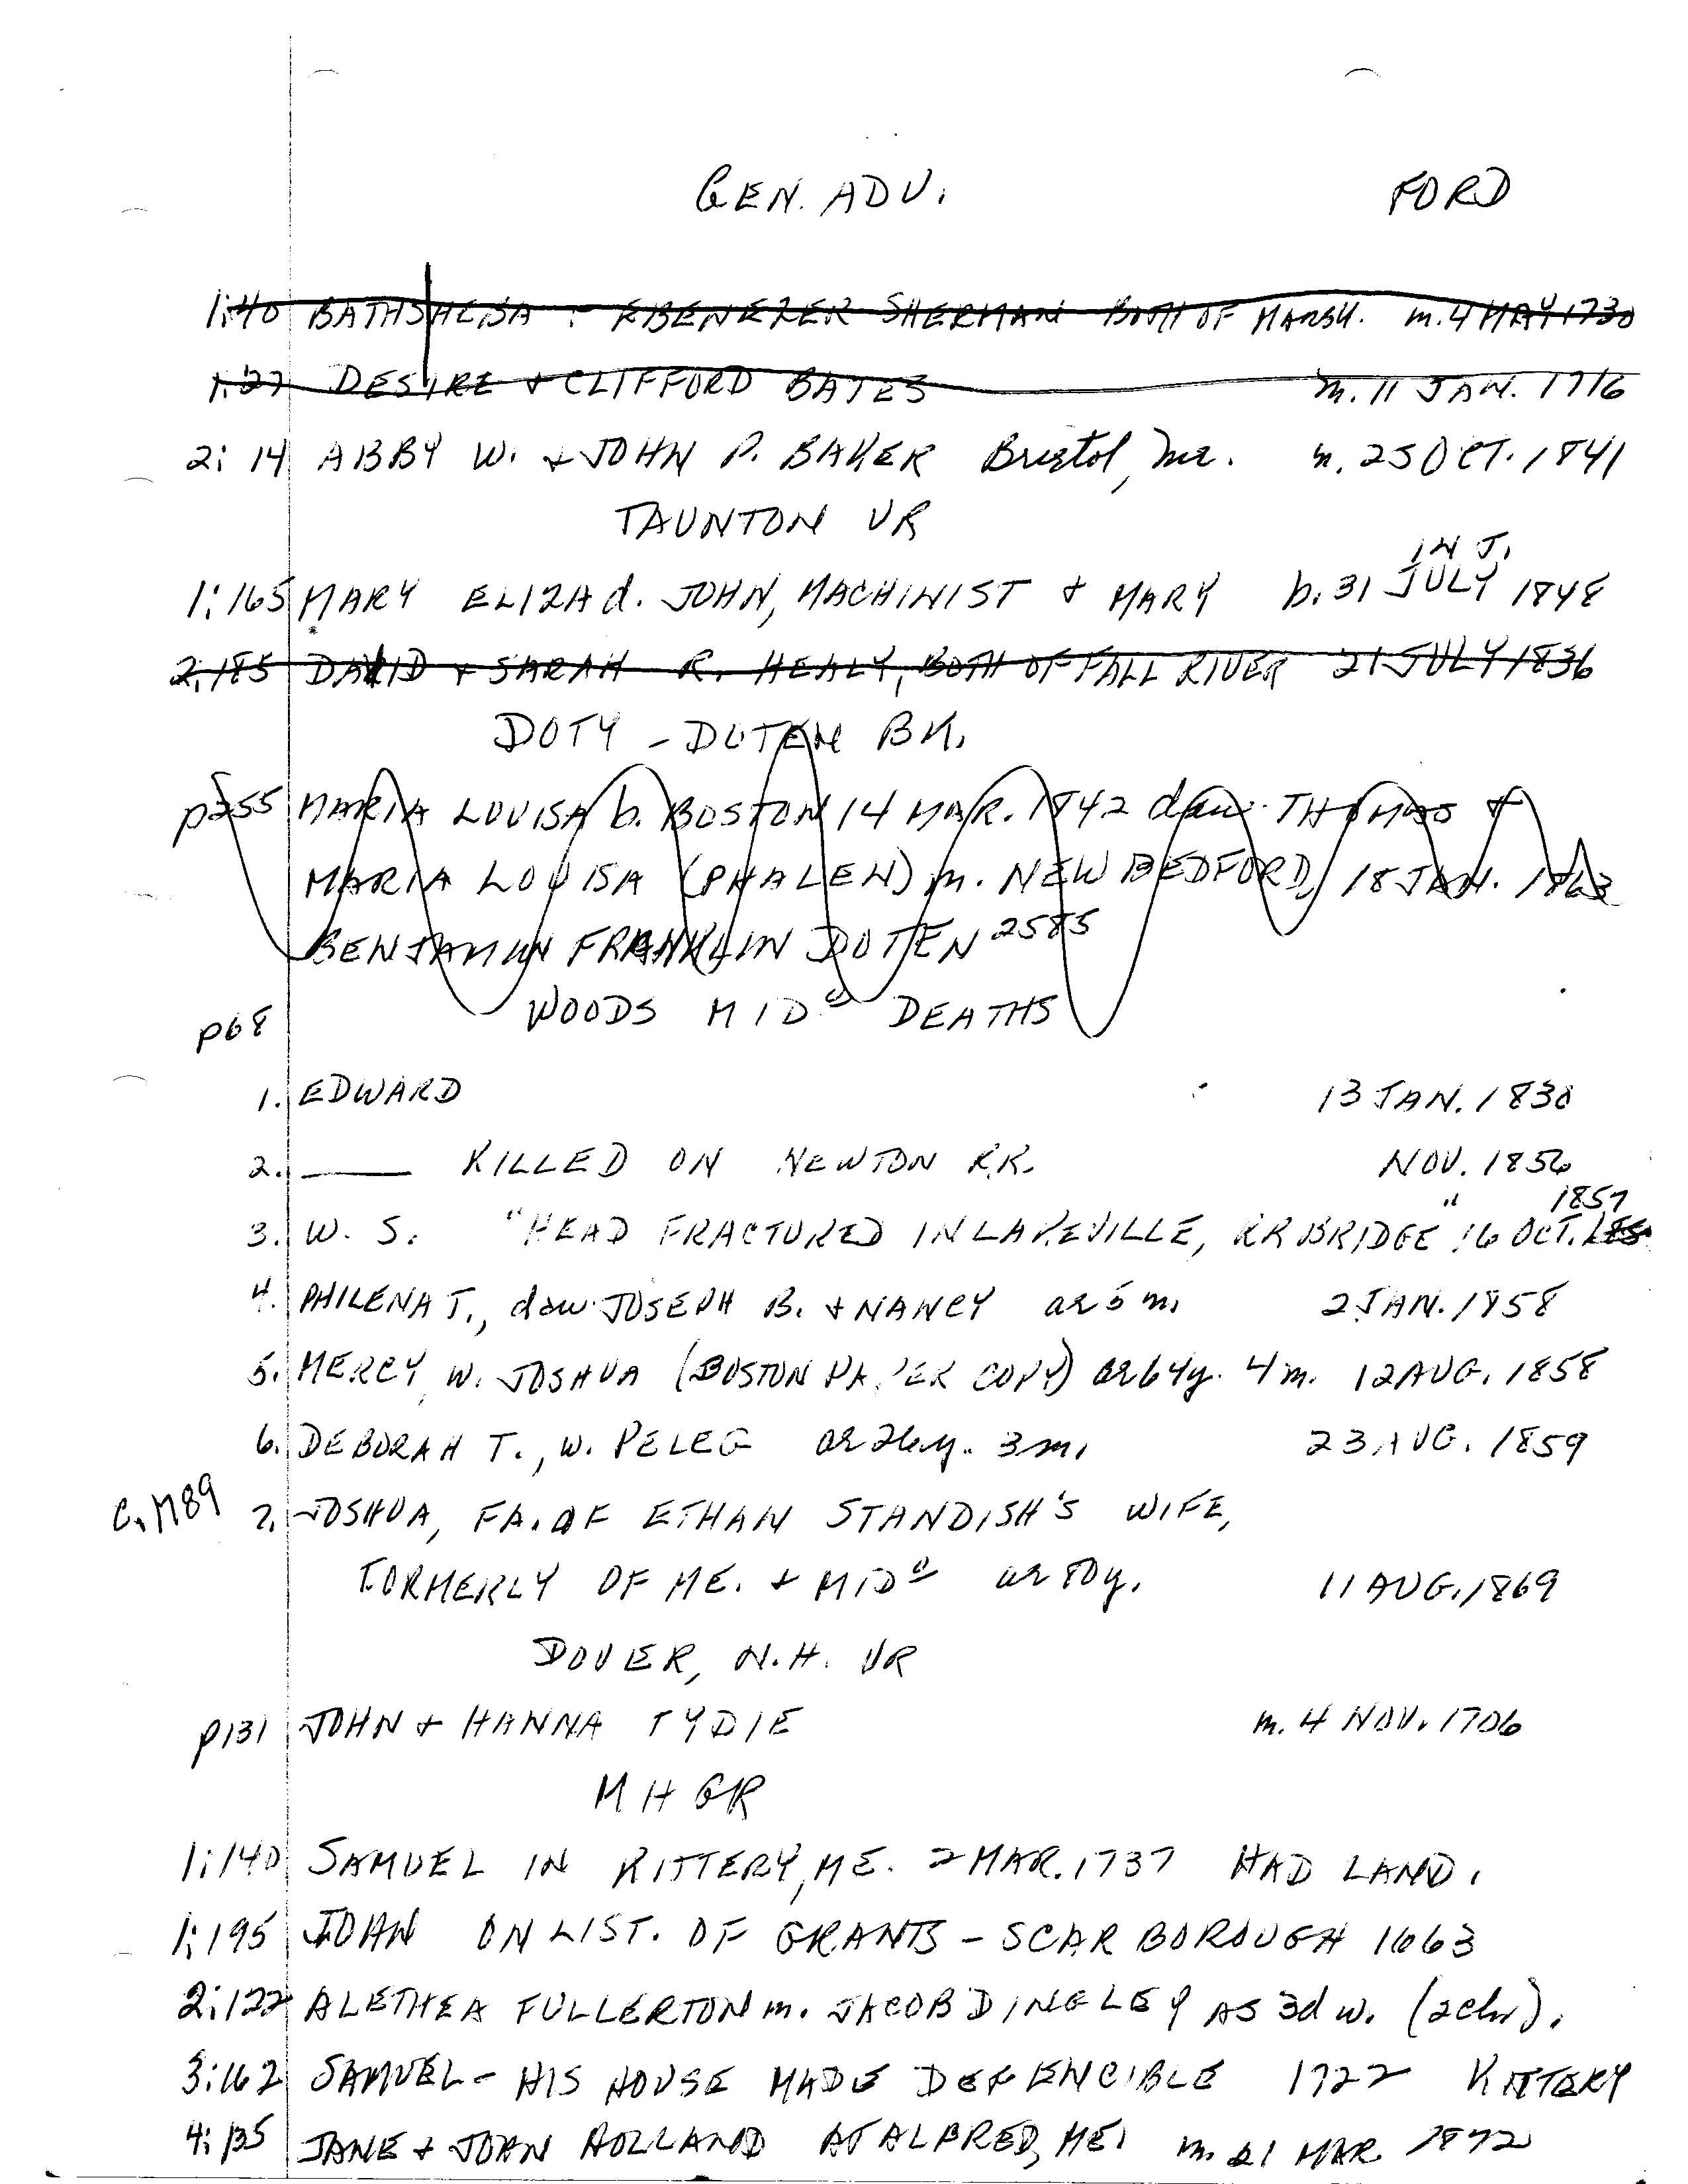 GEN. ADV. FORD
1:40 BATHSHEBA & EBENEZER SHERMAN BOTH OF MARSH. m. 4 MAY 1730
1:27 DESIRE & CLIFFORD BATES m. 11 JAN. 1716
2:14 ABBY W. & JOHN P. BAKER Bristol, Me. m. 25 OCT. 1841
TAUNTON VR
IN J.
1:165 MARY ELIZA d. JOHN, MACHINIST & MARY b. 31 JULY 1848
2:185 DAVID & SARAH R. HEALY, BOTH OF FALL RIVER 21 JULY 1836
DOTY - DOTEN BK.
p355 MARIA LOUISA b. BOSTON 14 MAR. 1842 dau. THOMAS &
MARIA LOUISA (PHALEN) m. NEW BEDFORD, 18 JAN. 1863
BENJAMIN FRANKLIN DOTEN 2585
WOODS MIDº DEATHS
p68
1. EDWARD 13 JAN. 1830
2. —— KILLED ON NEWTON R.R. NOV. 1856
" 1857
3. W. S. "HEAD FRACTURED IN LAKEVILLE, RR BRIDGE 16 OCT. 185
4. PHILENA T., dau. JOSEPH B. & NANCY ae 5 m. 2 JAN. 1858
5. MERCY, W. JOSHUA (BOSTON PAPER COPY) ae 64y. 4 m. 12 AUG. 1858
6. DEBORAH T., W. PELEG ae 26y. 3 m. 23 AUG. 1859
C. M89 7. JOSHUA, FA. OF ETHAN STANDISH'S WIFE,
FORMERLY OF ME. & MIDº ae 80y. 11 AUG. 1869
DOVER, N.H. VR
p131 JOHN & HANNA TYDIE m. 4 NOV. 1706
M H GR
1:140 SAMUEL IN KITTERY, ME. 2 MAR. 1737 HAD LAND.
1:195 JOHN ON LIST. OF GRANTS - SCARBOROUGH 1663
2:122 ALETHEA FULLERTON m. JACOB DINGLEY AS 3d w. (2 ch).
3:162 SAMUEL - HIS HOUSE MADE DEFENCIBLE 1722 KITTERY
4:135 JANE & JOHN HOLLAND AT ALFRED, ME. m. 21 MAR 1872